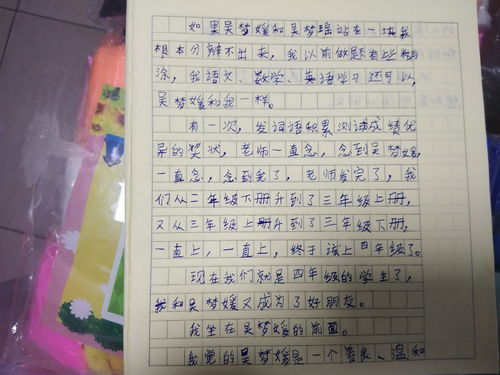 如果吴梦媛和吴梦瑶站在一块我
根本分辨不出来，我以前做题有些糊
涂，我语文、数学、英语学习还可以，
吴梦媛和我一样。
有一次，发词语积累测试成绩优
异的奖状，老师一直念，念到吴梦媛，
一直念，念到我了，老师发完了，我
们从二年级下册升到了三年级上册，
又从三年级上册升到了三年级下册，
一直上，一直上，终于该上四年级了。
现在我们就是四年级的学生了，
我和吴梦媛又成为了好朋友。
我坐在吴梦媛的前面。
我觉的吴梦媛是一个善良、温和